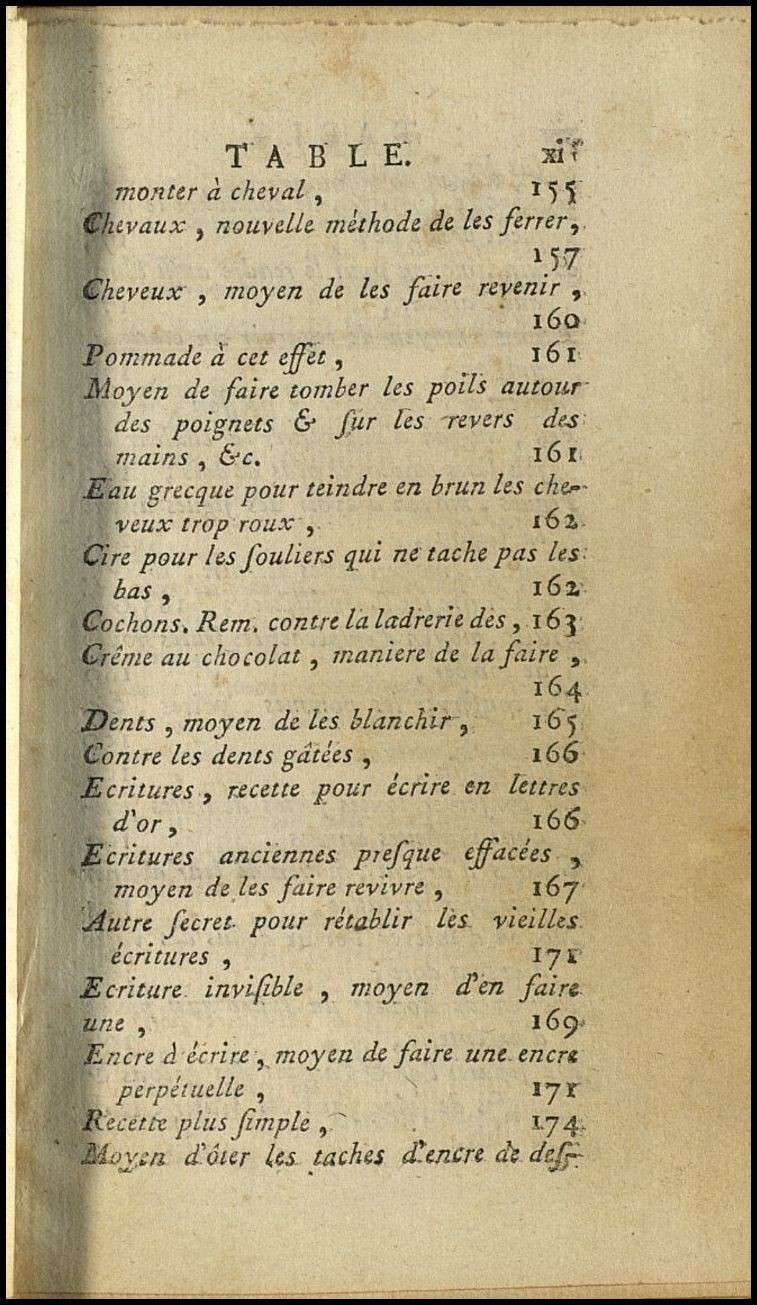 TABLE.
monter à cheval , 155
Chevaux , nouvelle méthode de les ferrer,
157
Cheveux , moyen de les faire revenir ,
160
Pommade à cet effet , 161
Moyen de faire tomber les poils autour
des poignets & ſur les revers des
mains , &c. 161
Eau grecque pour teindre en brun les che-
veux trop roux , 162
Cire pour les ſouliers qui ne tache pas les
bas , 162
Cochons. Rem. contre la ladrerie des , 163
Crême au chocolat , maniere de la faire ,
164
Dents , moyen de les blanchir , 165
Contre les dents gâtées , 166
Ecritures , recette pour écrire en lettres
d'or , 166
Ecritures anciennes preſque effacées ,
moyen de les faire revivre , 167
Autre ſecret pour rétablir les vieilles
écritures , 171
Ecriture inviſible , moyen d'en faire
une , 169
Encre à écrire , moyen de faire une encre
perpétuelle , 171
Recette plus ſimple , 174
Moyen d'ôter les taches d'encre de deſ-